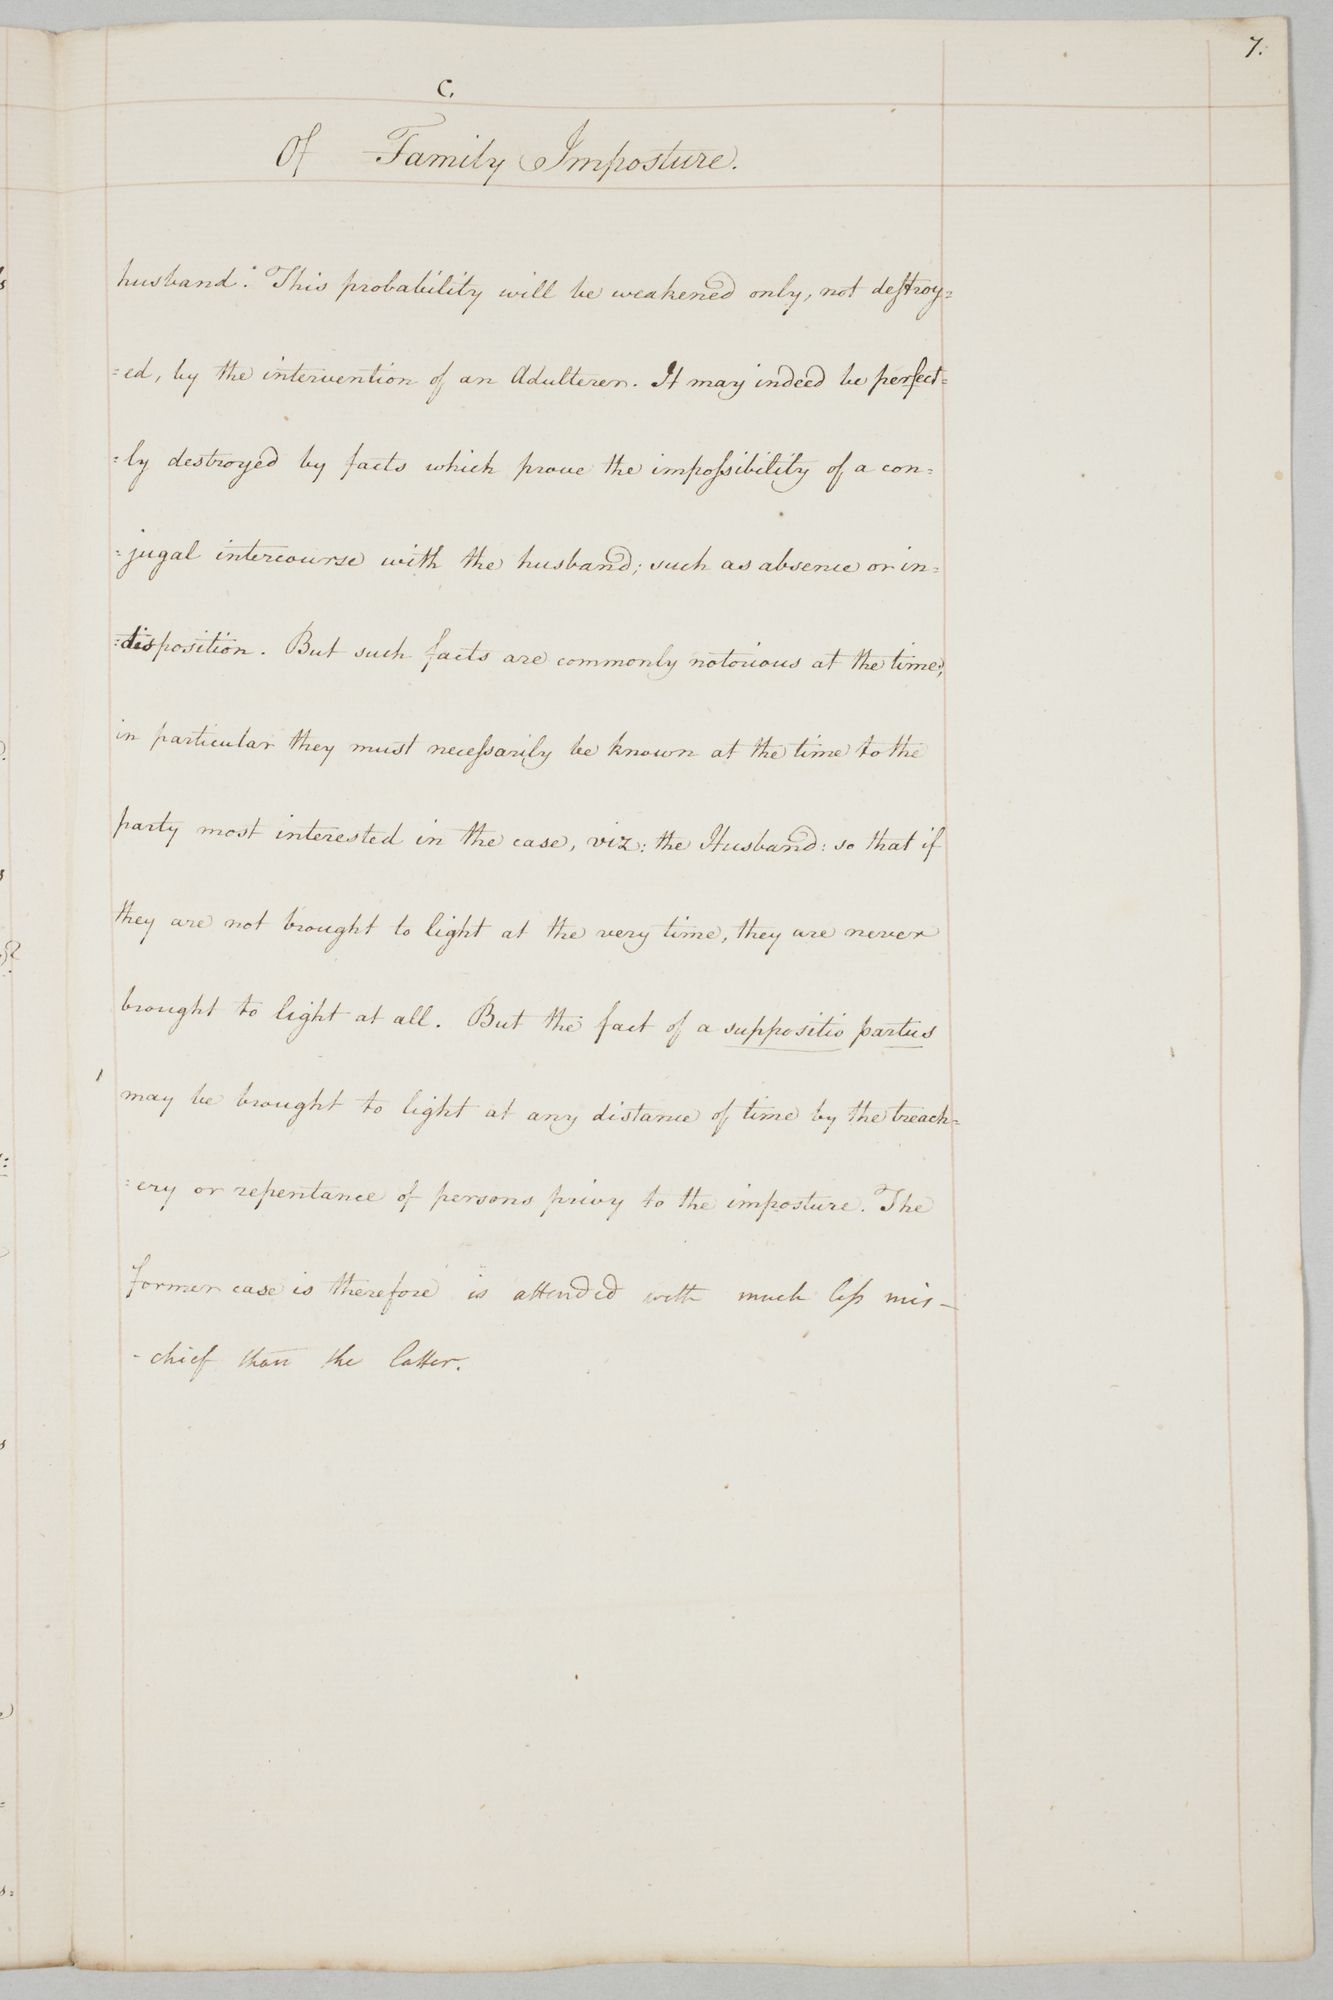 7.
C.
Of Family Imposture.
husband. This probability will be weakened only, not destroy=
=ed, by the intervention of an Adulterer. It may indeed be perfect=
=ly destroyed by facts which prove the impossibility of a con=
=jugal intercourse with the husband; such as absence or in=
=disposition. But such facts are commonly notorious at the time;
in particular they must necessarily be known at the time to the
party most interested in the case, viz: the Husband: so that if
they are not brought to light at the very time, they are never
brought to light at all. But the fact of a suppositio partus
may be brought to light at any distance of time by the treach=
=ery or repentance of persons privy to the imposture. The
former case is therefore is attended with much less mis-
-chief than the latter.